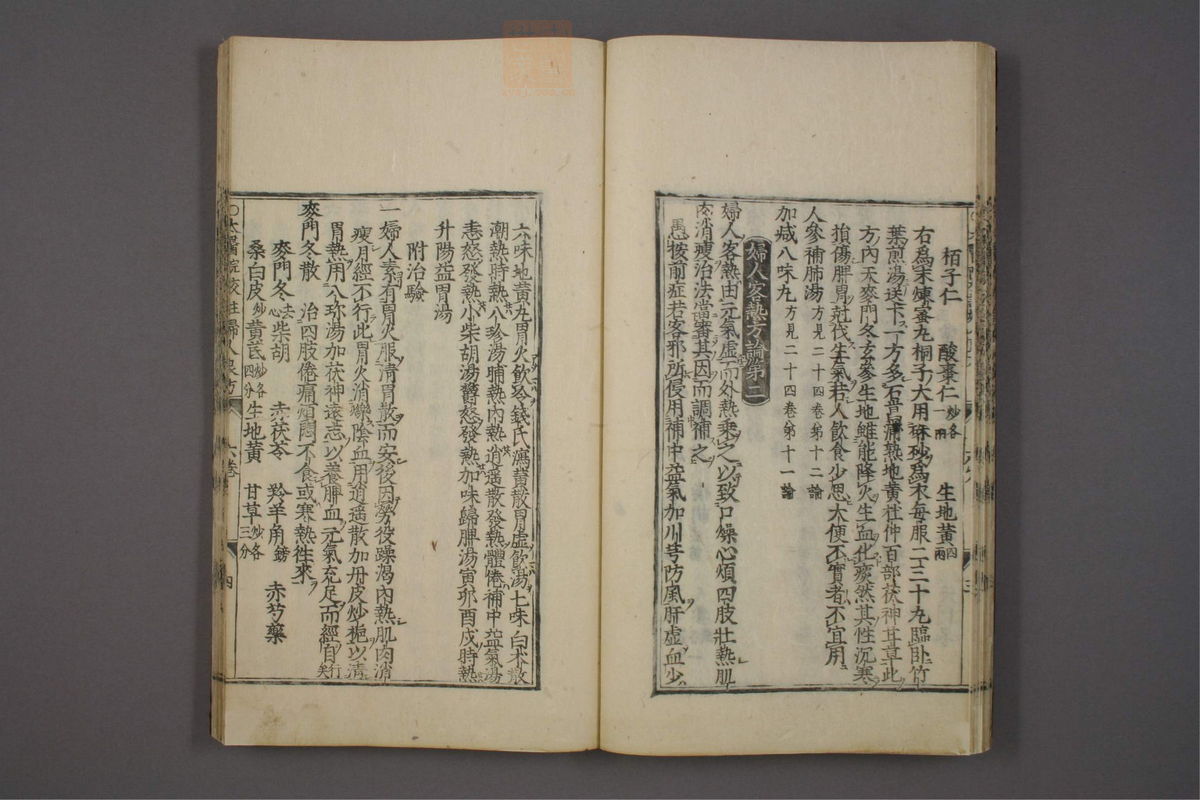 栢子仁　酸棗仁炒各一兩　生地黄四兩
右爲末煉蜜丸桐子大用珠砂爲衣每服二三十丸臨卧竹
葉煎湯送下一方多石菖蒲熟地黄杜仲百部茯神甘草此
方內天麥門冬玄參生地雖能降火生血化痰然其性沉寒
損傷脾胃尅伐生氣若人飲食少思大便不實者不宜用
人參補肺湯方見二十四卷第十二論
加减八味丸方見二十四卷第十一論
婦人客熱方論第二
婦人客熱由元氣虛而外熱乘之以致口燥心煩四肢壯熱肌
肉消瘦治法當審其因而調補之
愚按前症若客邪所侵用補中益氣加川芎防風肝虛血少
六味地黄丸胃火飲冷錢氏瀉黃散胃虛飲湯七味白朮散
潮熱時熱八珍湯晡熱內熱逍遥散發熱體倦補中益氣湯
恚怒發熱小柴胡湯欝怒發熱加味歸脾湯寅卯酉戌時熱
升陽益胃湯
附治驗
一婦人素有胃火服清胃散而安後因勞役躁渴內熱肌肉消
瘦月經不行此胃火消爍陰血用逍遥散加丹皮炒梔以清
胃熱用八珍湯加茯神遠志以養脾血元氣充足而經自行矣
麥門冬散　治四肢倦痛煩悶不食或寒熱徃來
麥門冬去心　柴胡　赤茯苓　羚羊角鎊　赤芍藥
桑白皮炒　黄芪炒各四分　生地黄　甘草炒各三分
○太醫院校註婦人良方　六卷　四